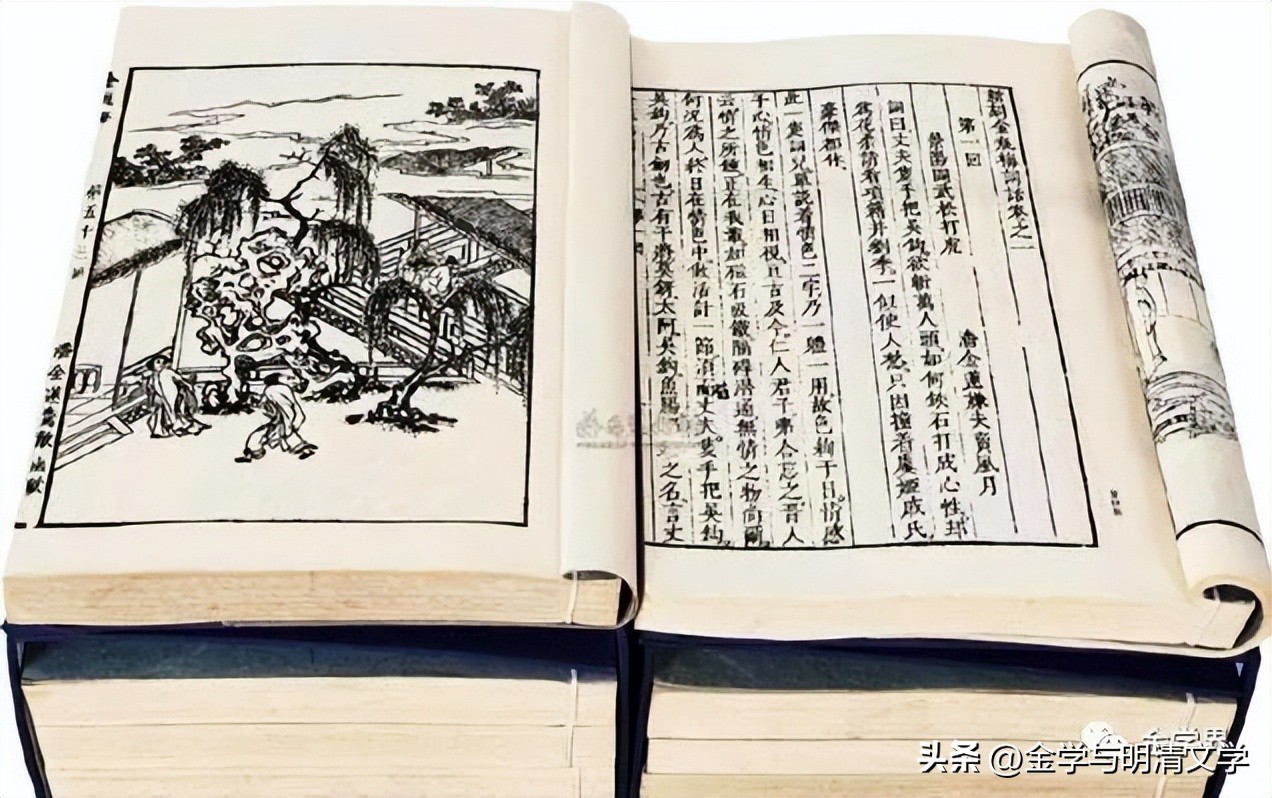 金瓶梅
第五十二回
潘金蓮驚散幽歡
新刻金瓶梅詞話卷之一
第一回
景陽岡武松打虎 潘金蓮嫌夫賣風月
詞曰丈夫隻手把吳鈎欲斬萬人頭如何鉄石打成心性却
爲花柔請看項籍并劉季一似使人愁只因撞着虞姬戚氏
豪傑都休
此一隻詞兒單說着情色二字乃一體一用故色絢于目情感
于心情色相生心目相視亘古及今仁人君子弗合忘之晋人
云情之所鍾正在我輩如磁石吸鐵隔碍潜通無情之物尚爾
何況爲人終日在情色中做活計一節須而丈夫隻手把吳鈎
吳鈎乃古劍也古有干將莫鋣太阿吳鈎魚腸之名言丈
金学界
头条 @金学与明清文学